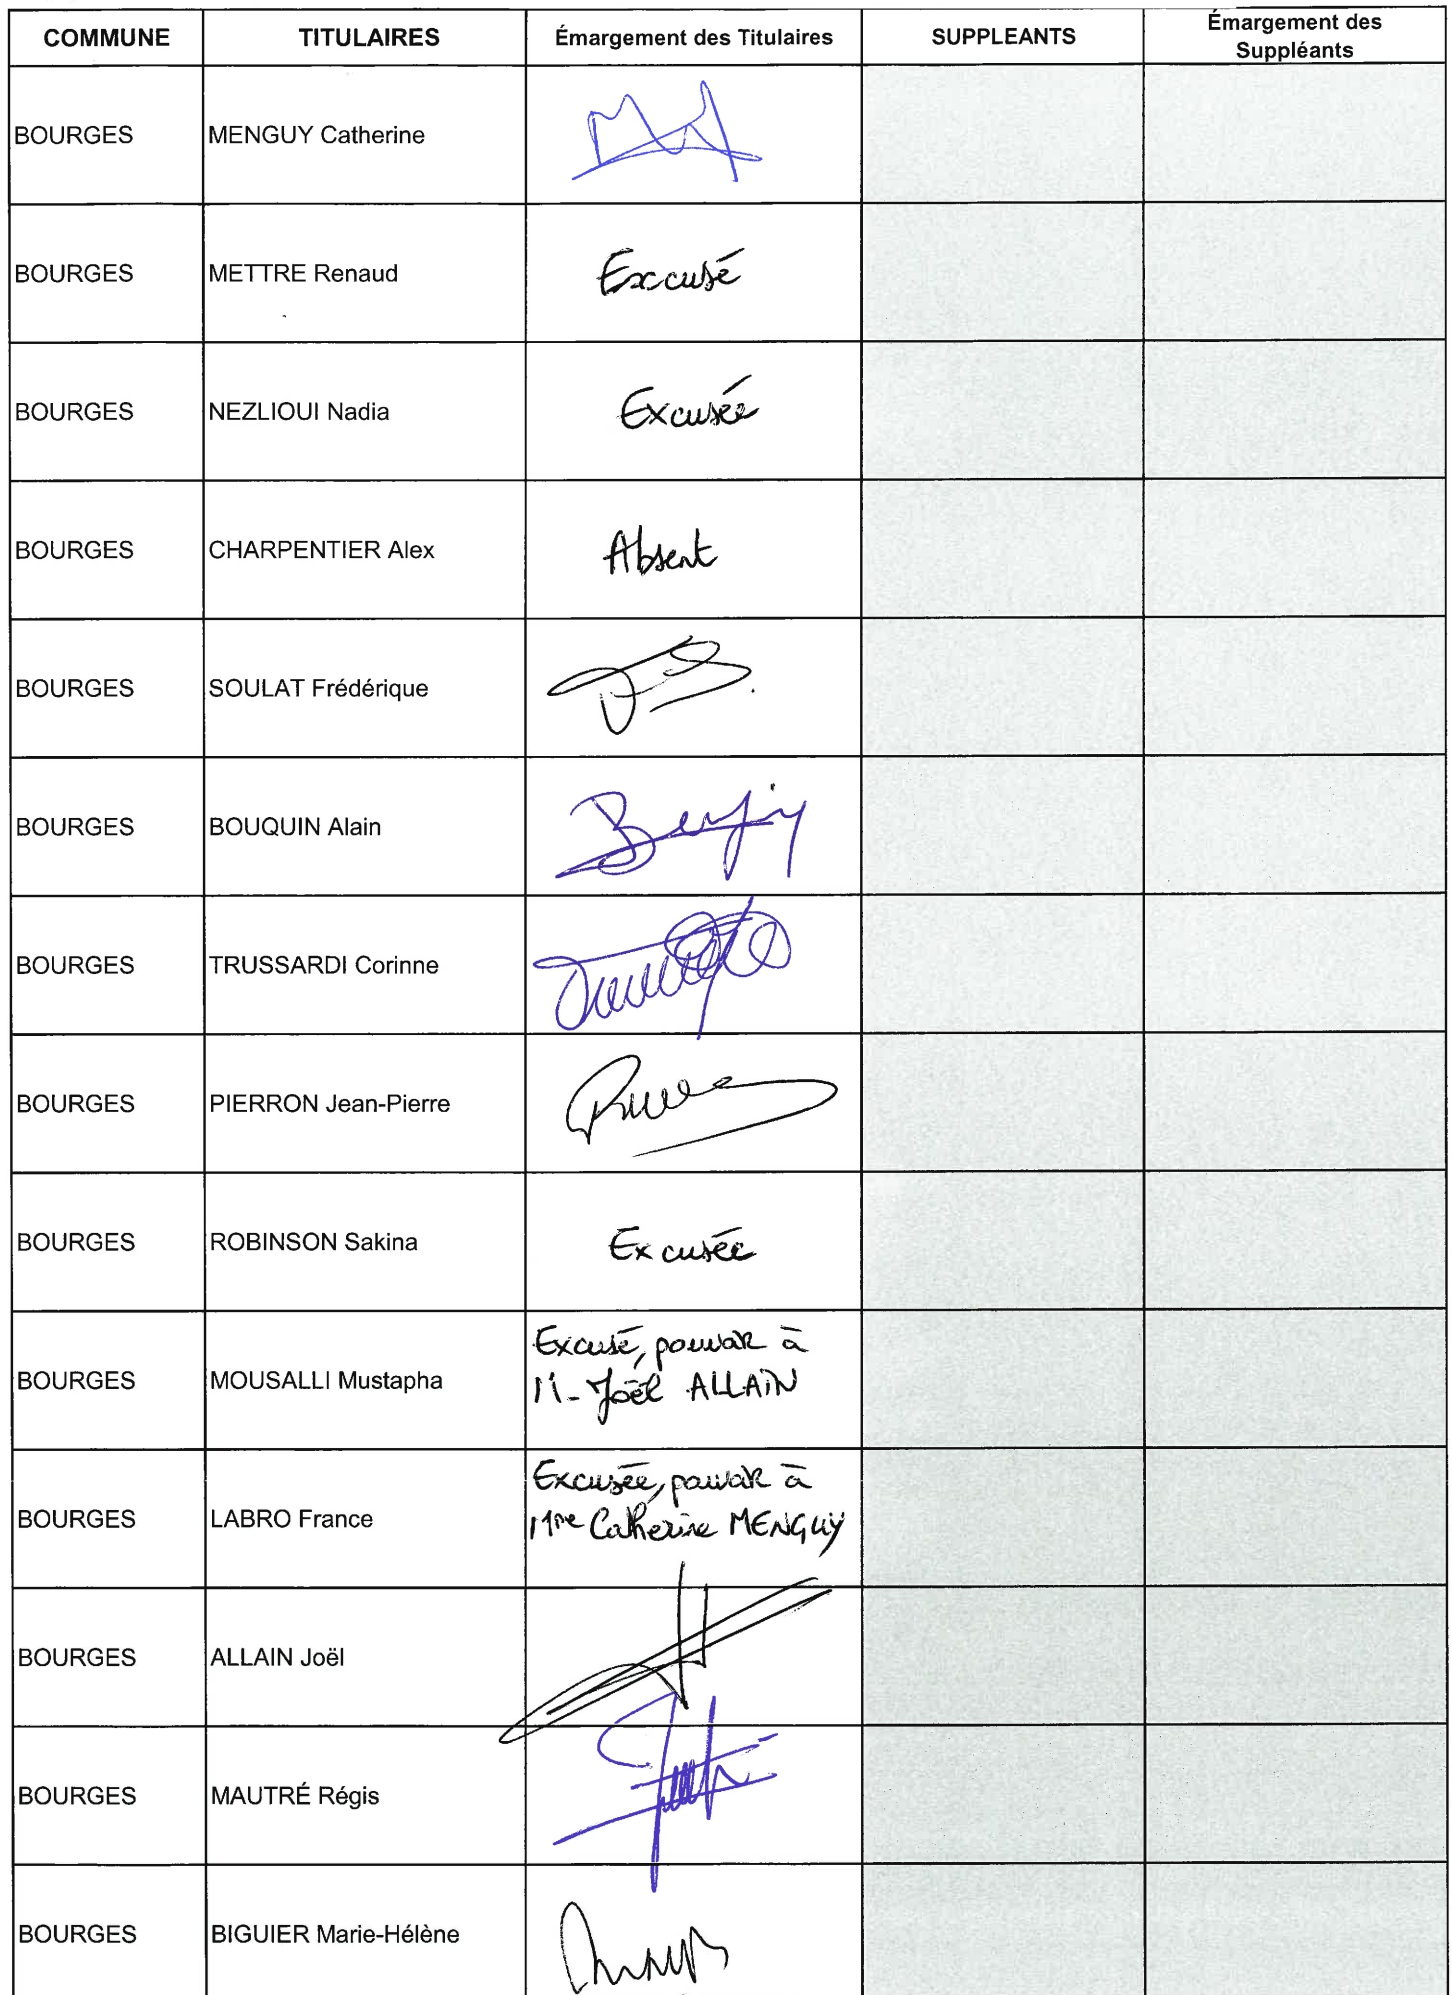 COMMUNE TITULAIRES Émargement des Titulaires SUPPLEANTS Émargement des Suppléants
BOURGES MENGUY Catherine
BOURGES METTRE Renaud Excusé
BOURGES NEZLIOUI Nadia Excusée
BOURGES CHARPENTIER Alex Absent
BOURGES SOULAT Frédérique
BOURGES BOUQUIN Alain
BOURGES TRUSSARDI Corinne
BOURGES PIERRON Jean-Pierre
BOURGES ROBINSON Sakina Excusée
BOURGES MOUSALLI Mustapha Excusé, pouvoir à
M. Joël ALLAIN
BOURGES LABRO France Excusée, pouvoir à
Mme Catherine MENGUY
BOURGES ALLAIN Joël
BOURGES MAUTRÉ Régis
BOURGES BIGUIER Marie-Hélène